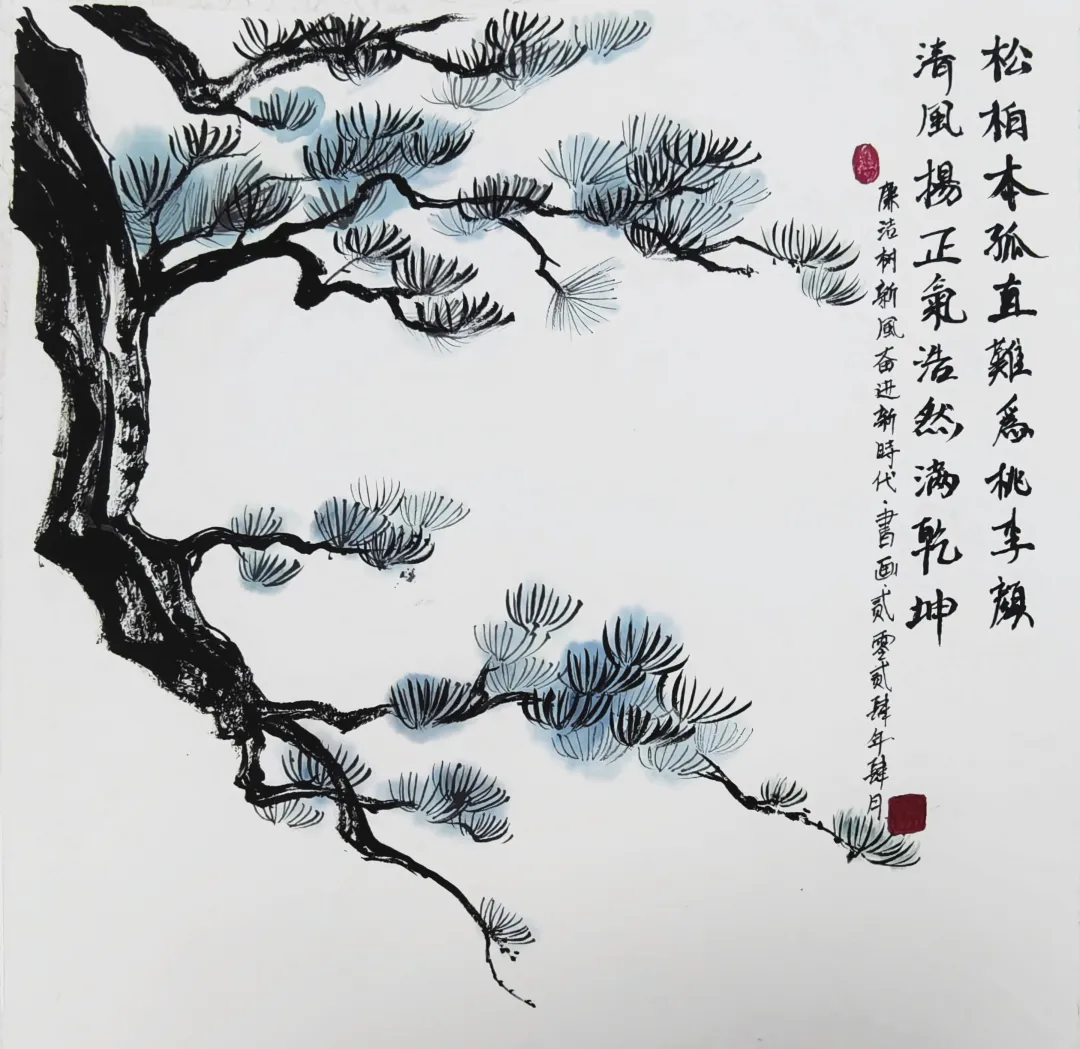 松柏本孤直難爲桃李顏
清風楊正氣浩然满乾坤
廉洁树新風奋进新時代·書画·贰零贰肆年肆月